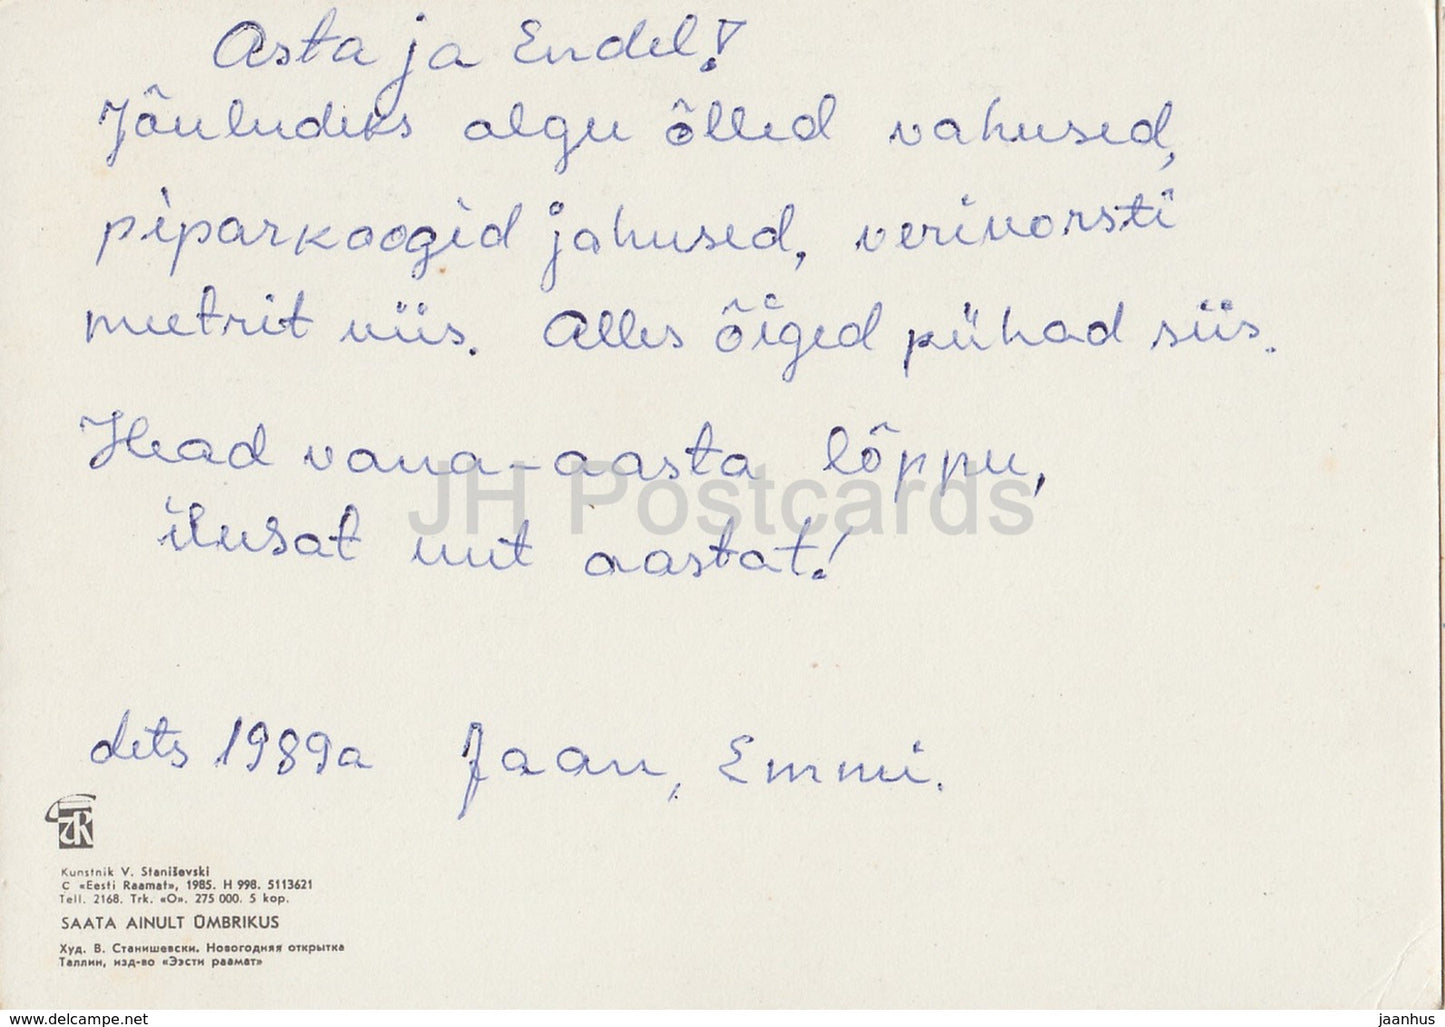 Asta ja Endel!
Jõuludeks olgu õlled vahused,
piparkoogid jahused, verivorsti
meetrit viis. Alles õiged pühad siis.
Head vana-aasta lõppu,
ilusat uut aastat!
JH Postcards
dets 1989a Jaan, Emmi.
Kunstnik V. Staniševski
C «Eesti Raamat», 1985. H 998. 5113621
Tell. 2168. Trk. «O». 275 000. 5 kop.
SAATA AINULT ÜMBRIKUS
Худ. В. Станишевски. Новогодняя открытка
Таллин, изд-во «Ээсти раамат»
www.delcampe.net
jaanhus